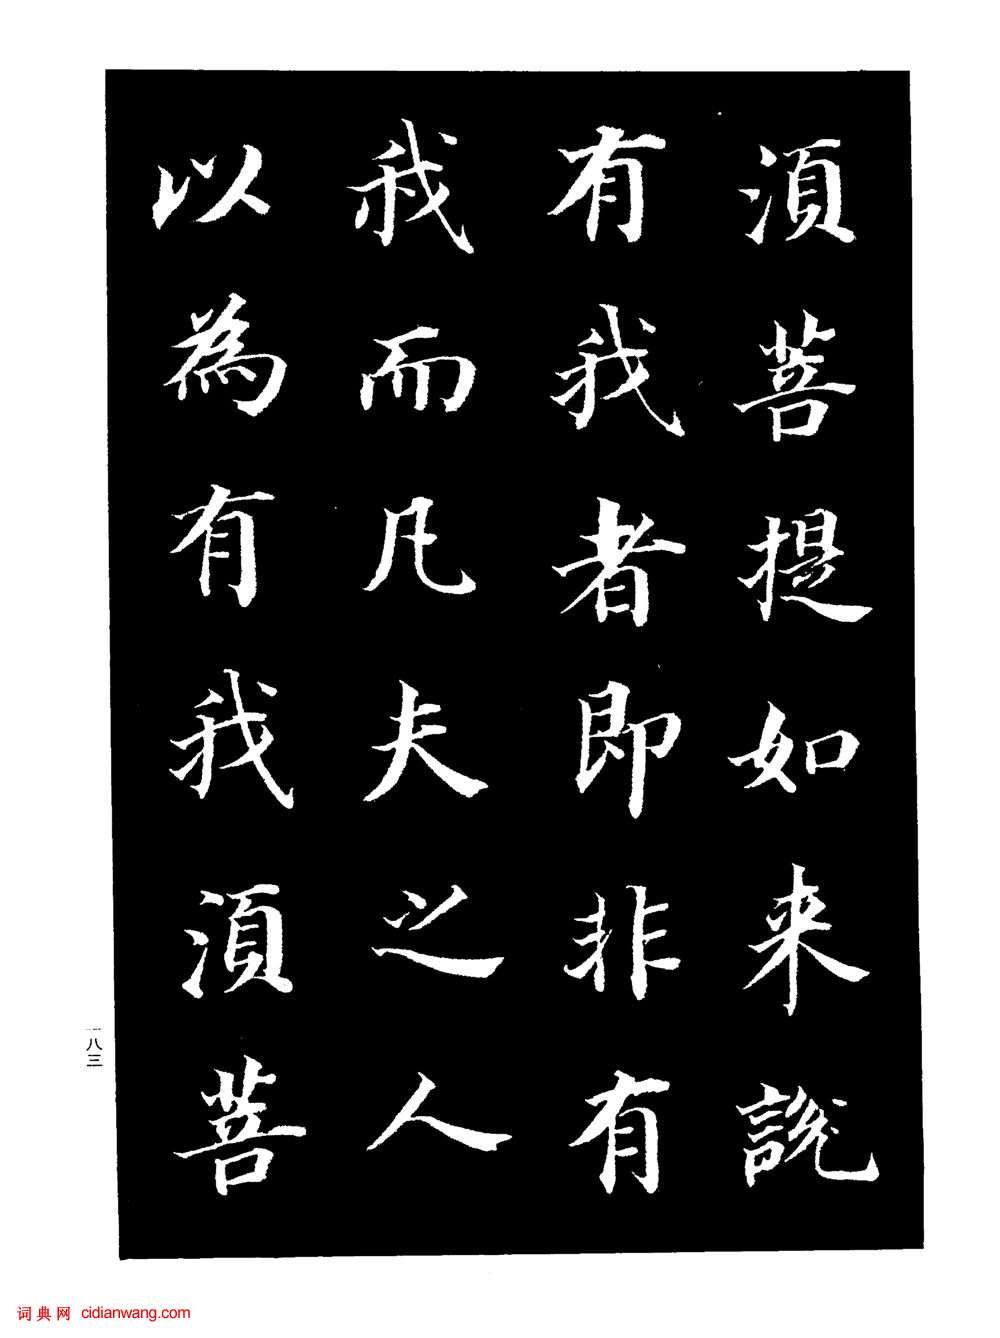 須菩提如来説
有我者即非有
我而凡夫之人
以為有我須菩
一八三
词典网 cidianwang.com